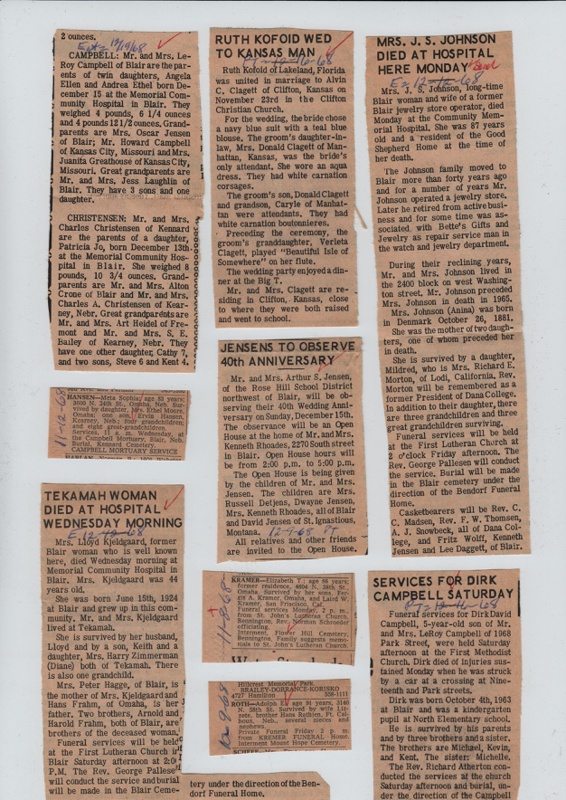 2 ounces.
Ent 12/19/68
CAMPBELL: Mr. and Mrs. Le-
Roy Campbell of Blair are the
parents of twin daughters, Angela
Ellen and Andrea Ethel born De-
cember 15 at the Memorial Com-
munity Hospital in Blair. They
weighed 4 pounds, 6 1/4 ounces
and 4 pounds 12 1/2 ounces, Grand-
parents are Mrs. Oscar Jensen
of Blair; Mr. Howard Campbell
of Kansas City, Missouri and Mrs.
Juanita Greathouse of Kansas City,
Missouri. Great grandparents are
Mr. and Mrs. Jess Laughlin of
Blair. They have 3 sons and one
daughter.
CHRISTENSEN: Mr. and Mrs.
Charles Christensen of Kennard
are the parents of a daughter,
Patricia Jo, born December 13th
at the Memorial Community Hos-
pital in Blair. She weighed 8
pounds, 10 3/4 ounces. Grand-
parents are Mr. and Mrs. Alton
Crone of Blair and Mr. and Mrs.
Charles A. Christensen of Kear-
ney, Nebr. Great grandparents are
Mr. and Mrs. Art Heidel of Fre-
mont and Mr. and Mrs. S. E.
Bailey of Kearney, Nebr. They
have one other daughter, Cathy 7,
and two sons, Steve 6 and Kent 4.
11-12-68
HANSEN—Meta Sophia; age 85 years,
3600 N. 24th St., Omaha, Neb. Sur-
vived by daughter, Mrs. Ethel Moore,
Omaha; one son, Ervin Hansen,
Kearney, Neb.; four grandchildren;
and eight great-grandchildren.
Services, 11 a.m. Wednesday, at
the Campbell Mortuary, Blair, Neb.
Burial, Kennard Cemetery.
CAMPBELL MORTUARY SERVICE
TEKAMAH WOMAN
DIED AT HOSPITAL
WEDNESDAY MORNING
E 12-68
Mrs. Lloyd Kjeldgaard, former
Blair woman who is well known
here, died Wednesday morning at
Memorial Community Hospital in
Blair. Mrs. Kjeldgaard was 44
years old.
She was born June 15th, 1924
at Blair and grew up in this com-
munity. Mr. and Mrs. Kjeldgaard
lived at Tekamah.
She is survived by her husband,
Lloyd and by a son, Keith and a
daughter, Mrs. Harry Zimmerman
(Diane) both of Tekamah. There
is also one grandchild.
Mrs. Peter Hagge, of Blair, is
the mother of Mrs. Kjeldgaard and
Hans Frahm, of Omaha, is her
father. Two brothers, Arnold and
Harold Frahm, both of Blair, are
brothers of the deceased woman.
Funeral services will be held
at the First Lutheran Church in
Blair Saturday afternoon at 2:00
P.M. The Rev. George Pallesen
will conduct the service and burial
will be made in the Blair Ceme-
tery under the direction of the Ben-
dorf Funeral Home.
RUTH KOFOID WED
TO KANSAS MAN
PT-12-16-68
Ruth Kofoid of Lakeland, Florida
was united in marriage to Alvin
C. Clagett of Clifton, Kansas on
November 23rd in the Clifton
Christian Church.
For the wedding, the bride chose
a navy blue suit with a teal blue
blouse. The groom's daughter-in-
law, Mrs. Donald Clagett of Man-
hattan, Kansas, was the bride's
only attendant. She wore an aqua
dress. They had white carnation
corsages.
The groom's son, Donald Clagett
and grandson, Caryle of Manhat-
tan were attendants. They had
white carnation boutennieres.
Preceding the ceremony, the
groom's granddaughter, Verleta
Clagett, played "Beautiful Isle of
Somewhere" on her flute.
The wedding party enjoyed a din-
ner at the Big T.
Mr. and Mrs. Clagett are re-
siding in Clifton, Kansas, close
to where they were both raised
and went to school.
JENSENS TO OBSERVE
40th ANNIVERSARY
Mr. and Mrs. Arthur S. Jensen,
of the Rose Hill School District
northwest of Blair, will be ob-
serving their 40th Wedding Anni-
versary on Sunday, December 15th.
The observance will be an Open
House at the home of Mr. and Mrs.
Kenneth Rhoades, 2270 South street
in Blair. Open House hours will
be from 2:00 p.m. to 5:00 p.m.
The Open House is being
given by the children of Mr. and Mrs.
Jensen. The children are Mrs.
Russell Detjens, Dwayne Jensen,
Mrs. Kenneth Rhoades, all of Blair
and David Jensen of St. Ignastious,
Montana. 12-9-68 PT
All relatives and other friends
are invited to the Open House.
11-8-68
KRAMER—Elizabeth T.; age 86 years;
former residence, 4604 N. 24th St.,
Omaha. Survived by her sons, Fer-
did A. Kramer, Omaha, and Leland W.
Kramer, San Francisco, Cal.
Funeral services Monday, 2 p.m.
from St. John's Lutheran Church,
Bennington, Rev. Norman Schroeder
officiating.
Interment, Flower Hill Cemetery,
Bennington. Family suggests memo-
rials to St. John's Lutheran Church.
12-9-68
Hillcrest Memorial Park.
BRAILEY-DORRANCE-KORISKO
4727 Hamilton 558-1111
ROTH—Adolph E.; age 91 years, 3140
No. 24th St. Survived by wife Liz-
zete, brother Hans Rathjen, Ft. Cal-
houn, Neb., several nieces and
nephews.
Private Funeral Friday 2 p.m.
from KREMER FUNERAL HOME.
Interment Mount Hope Cemetery.
MRS. J. S. JOHNSON
DIED AT HOSPITAL
HERE MONDAY
E-12-68
Mrs. J. S. Johnson, long-time
Blair woman and wife of a former
Blair jewelry store operator, died
Monday at the Community Mem-
orial Hospital. She was 87 years
old and a resident of the Good
Shepherd Home at the time of
her death.
The Johnson family moved to
Blair more than forty years ago
and for a number of years Mr.
Johnson operated a jewelry store.
Later he retired from active busi-
ness and for some time was as-
sociated with Bette's Gifts and
Jewelry as repair service man in
the watch and jewelry department.
During their reclining years,
Mr. and Mrs. Johnson lived in
the 2400 block on west Washing-
ton street. Mr. Johnson preceded
Mrs. Johnson in death in 1965.
Mrs. Johnson (Anina) was born
in Denmark October 26, 1881.
She was the mother of two daugh-
ters, one of whom preceded her
in death.
She is survived by a daughter,
Mildred, who is Mrs. Richard E.
Morton, of Lodi, California, Rev.
Morton will be remembered as a
former President of Dana College.
In addition to their daughter, there
are three grandchildren and three
great grandchildren surviving.
Funeral services will be held
at the First Lutheran Church at
2 o'clock Friday afternoon. The
Rev. George Pallesen will conduct
the service. Burial will be made
in the Blair cemetery under the
direction of the Bendorf Funeral
Home.
Casketbearers will be Rev. C.
C. Madsen, Rev. F. W. Thomsen,
A. J. Snowbeck, all of Dana Col-
lege, and Fritz Wolff, Kenneth
Jensen and Lee Daggett, of Blair.
SERVICES FOR DIRK
CAMPBELL SATURDAY
PT-12-16-68
Funeral services for Dirk David
Campbell, 5-year-old son of Mr.
and Mrs. LeRoy Campbell of 1968
Park Street, were held Saturday
afternoon at the First Methodist
Church. Dirk died of injuries sus-
tained Monday when he was struck
by a car at a crossing at Nine-
teenth and Park streets.
Dirk was born October 4th, 1963
at Blair and was a kindergarten
pupil at North Elementary school.
He is survived by his parents
and by three brothers and a sister.
The brothers are Michael, Kevin,
and Kent. The sister: Michelle.
The Rev. Richard Atherton con-
ducted the services at the church
Saturday afternoon and burial, un-
der the direction of the Campbell